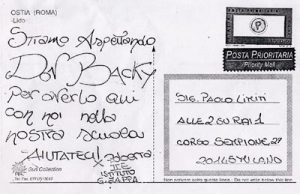 OSTIA (ROMA)
Lido
Stiamo Aspettando
Don Backy
Per averlo qui
con noi nella
nostra scuola
AIUTATECI
ISTITUTO
POSTA PRIORITARIA
Priority Mail
SIG. PAOLO LIMITI
ALLE 2 SU RAI 1
CORSO SEMPIONE 27
20145 MILANO
Collection